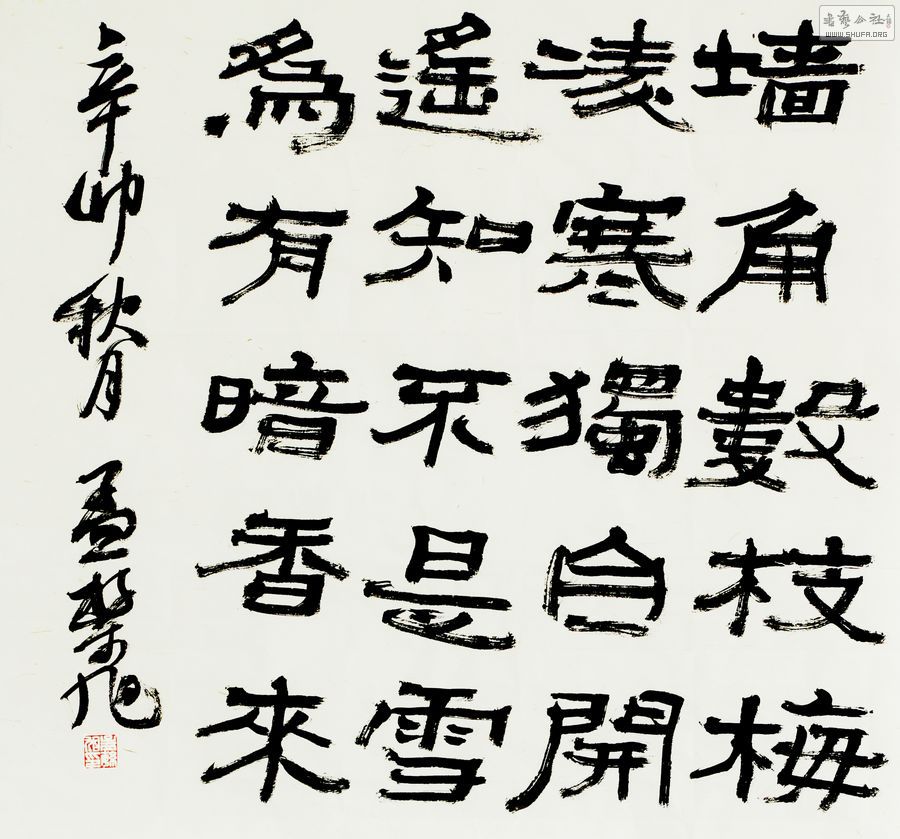 墙角數枝梅
凌寒獨自開
遙知不是雪
爲有暗香來
辛卯秋月 孟
書藝公社
WWW.SHUFA.ORG